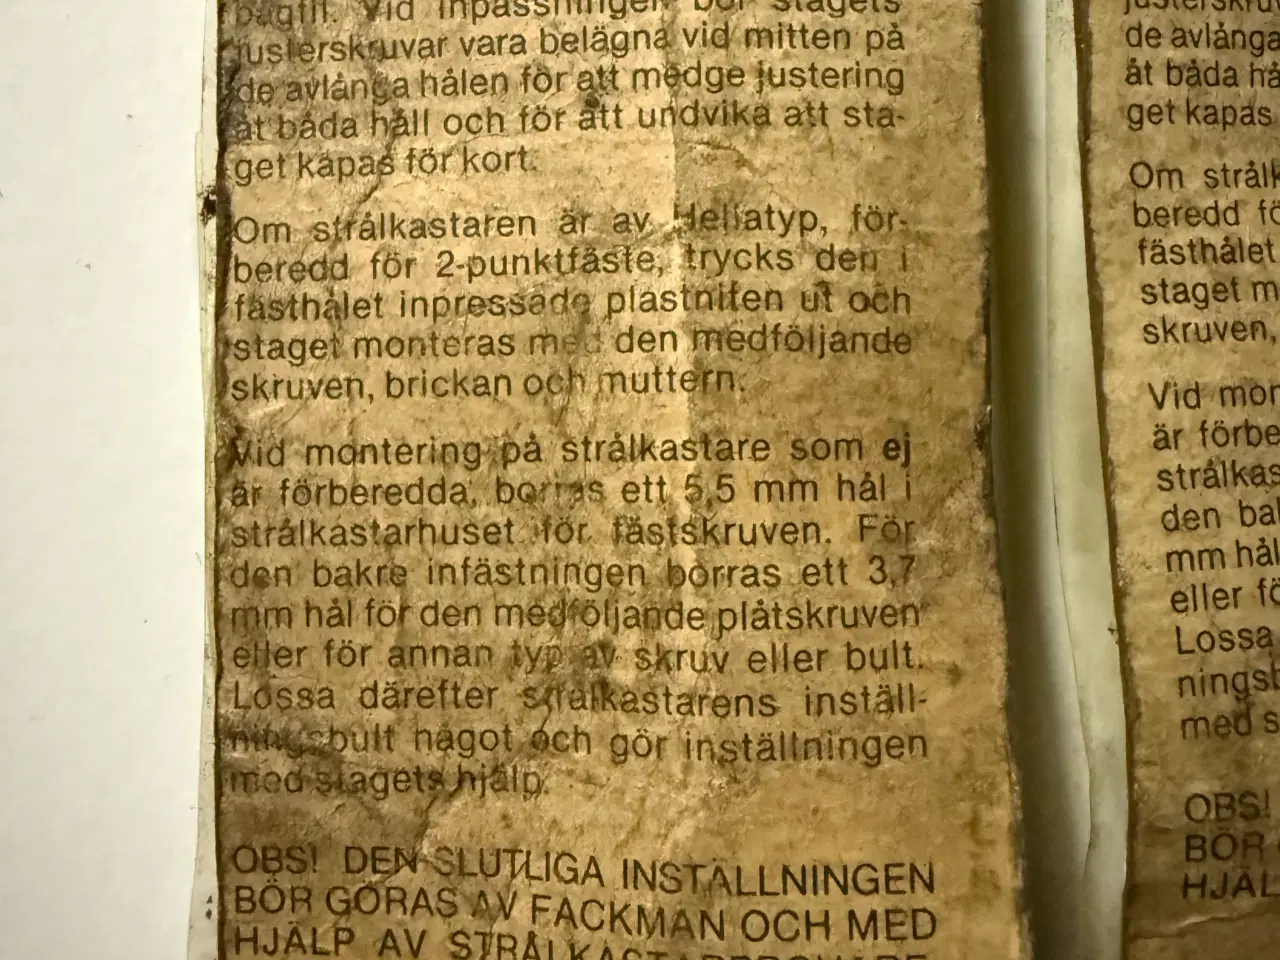 bågfil. Vid inpassningen bör stagets
justerskruvar vara belägna vid mitten på
de avlånga hålen för att medge justering
åt båda håll och för att undvika att sta-
get kapas för kort.
Om strålkastaren är av Hellatyp, för-
beredd för 2-punktfäste, trycks den i
fästhålet inpressade plastniten ut och
staget monteras med den medföljande
skruven, brickan och muttern.
Vid montering på strålkastare som ej
är förberedda, borras ett 5,5 mm hål i
strålkastarhuset för fästskruven. För
den bakre infästningen borras ett 3,7
mm hål för den medföljande plåtskruven
eller för annan typ av skruv eller bult.
Lossa därefter strålkastarens inställ-
ningsbult något och gör inställningen
med stagets hjälp.
OBS! DEN SLUTLIGA INSTÄLLNINGEN
BÖR GÖRAS AV FACKMAN OCH MED
HJÄLP AV
de avlånga
åt båda hå
get kapas
Om strålk
beredd fö
fästhålet
staget m
skruven,
Vid mon
är förbe
strålkas
den bak
mm hål
eller fö
Lossa
ningsb
med s
OBS!
BÖR
HJÄL